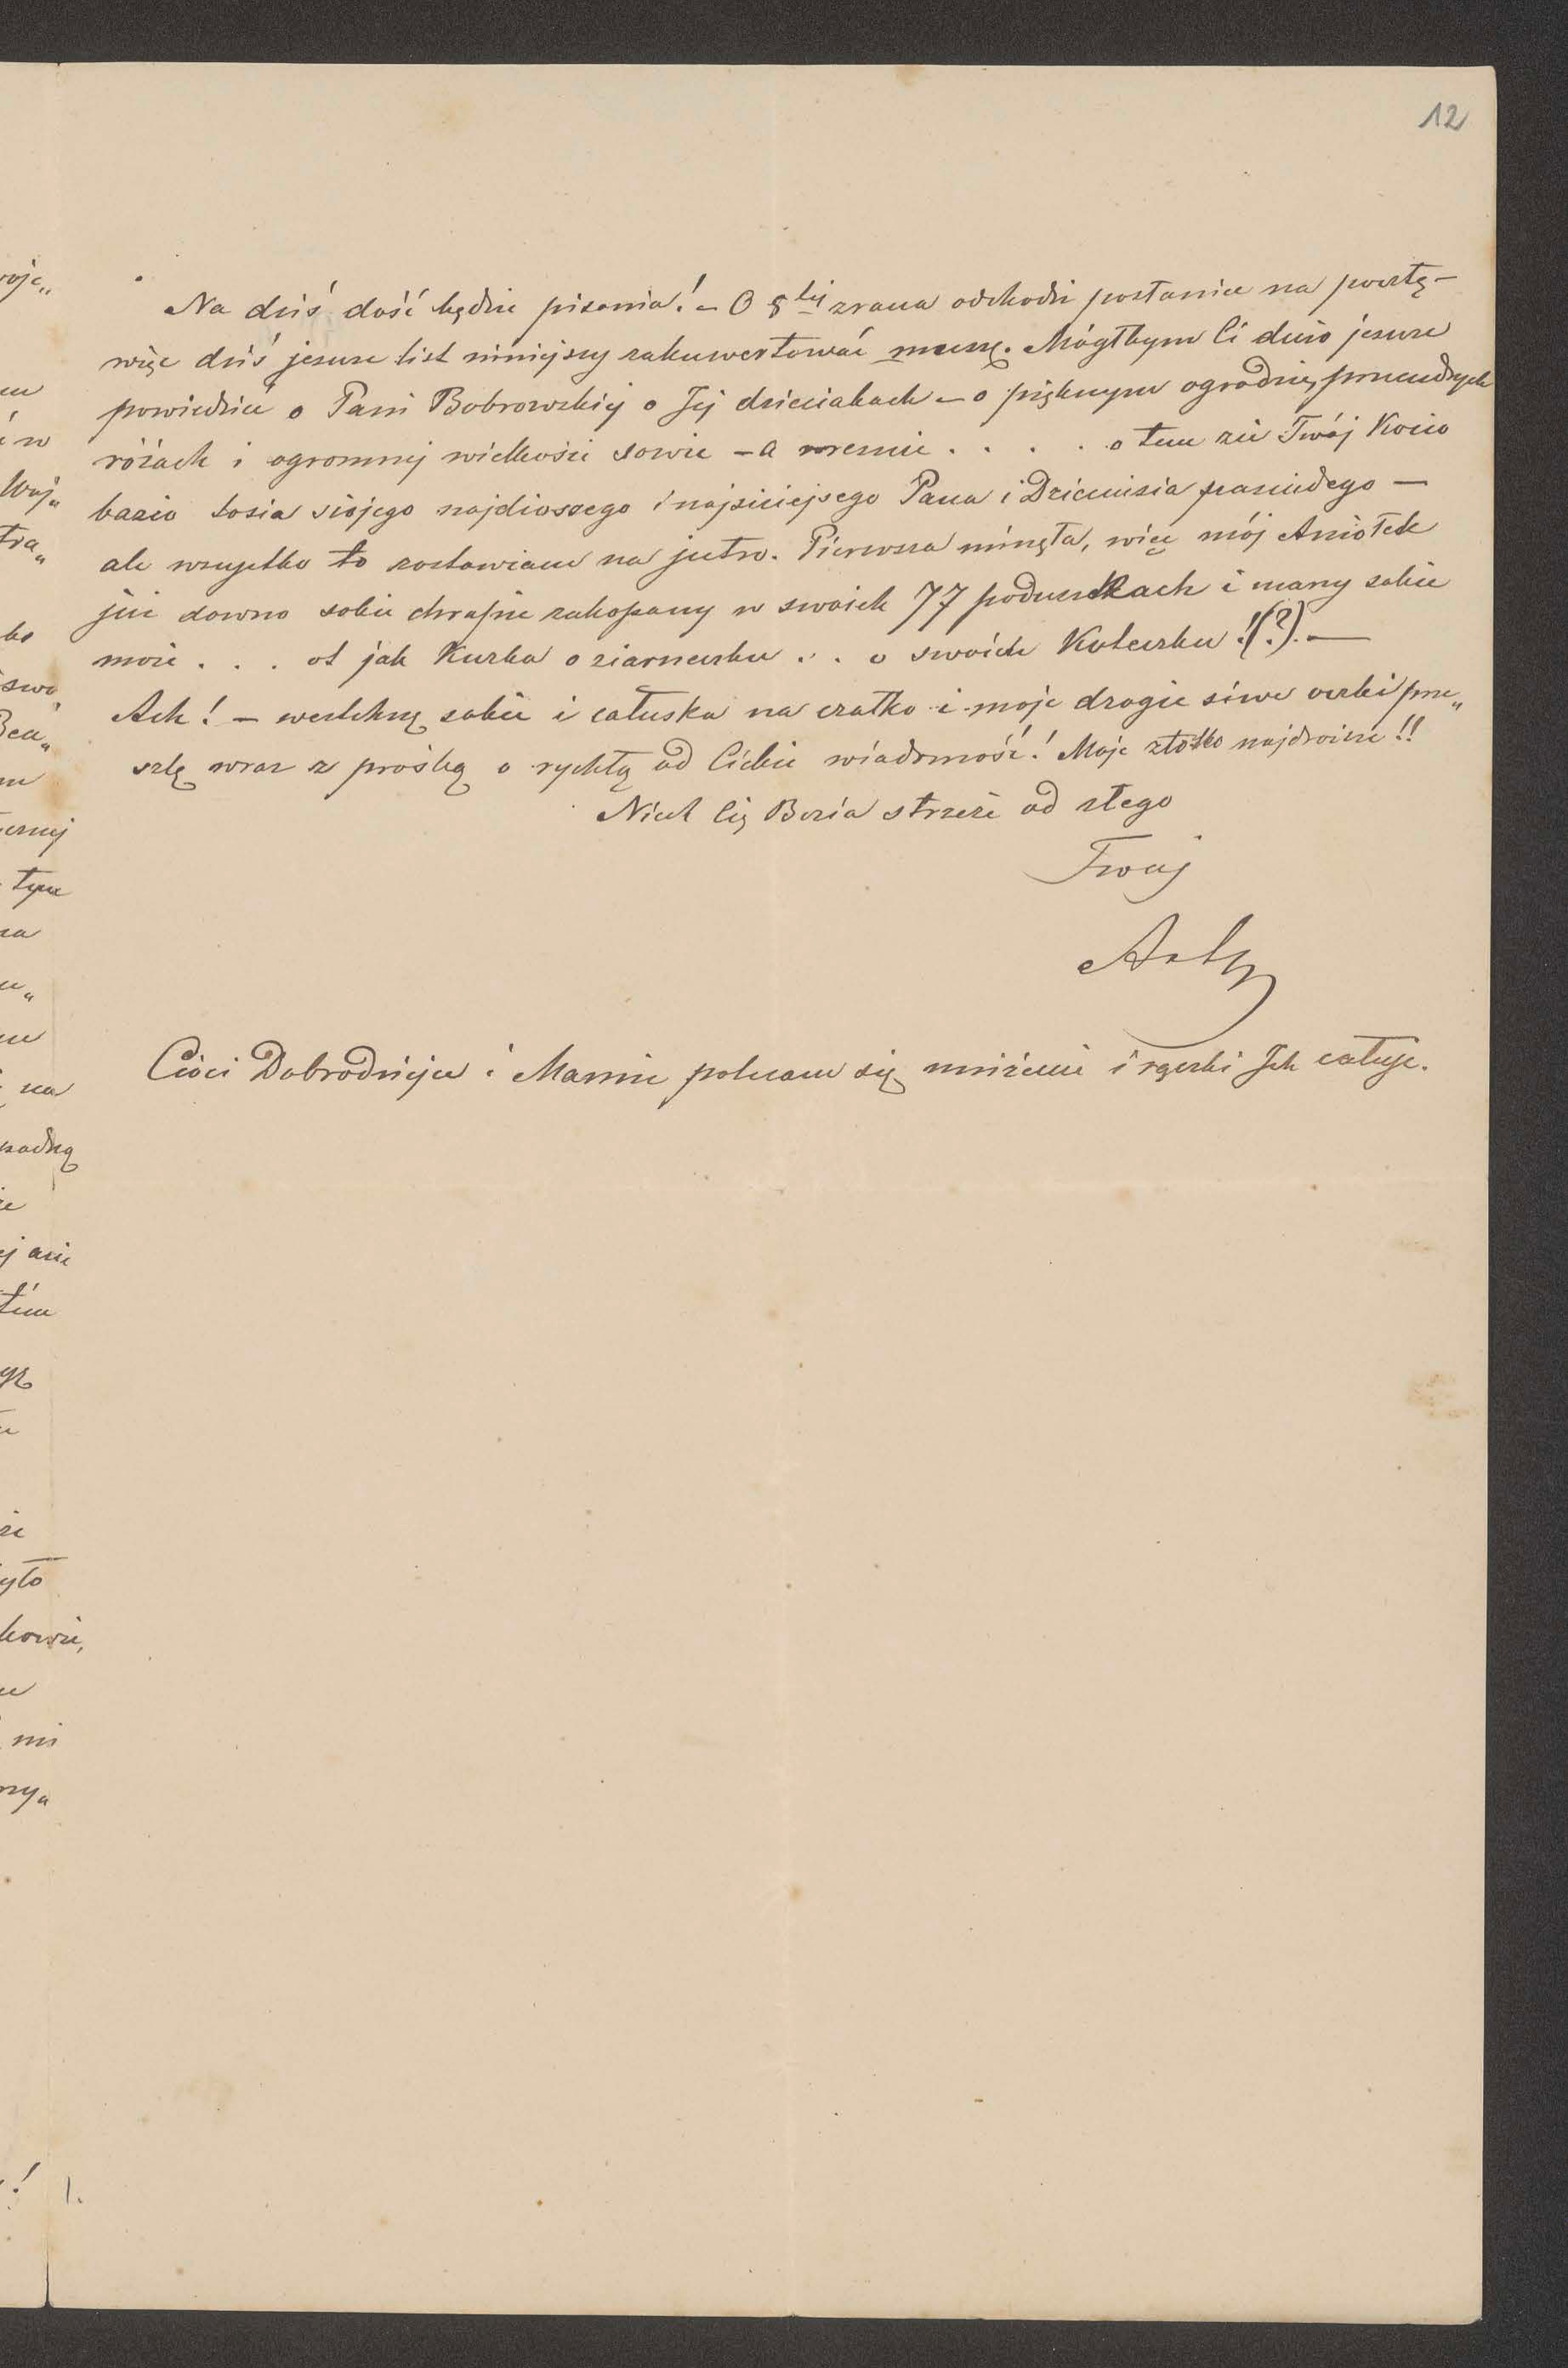 12
Na dziś dość będzie pisania! – O 5tej zrana odchodzi posłaniec na pocztę –
więc dziś jeszcze list niniejszy zakuwertować muszę. Mógłbym Ci dużo jeszcze
powiedzieć o Pani Bobrowskiej o Jej dzieciakach – o pięknym ogrodzie, przecudnych
różach i ogromnej wielkości sowie – a wreszcie . . . . o tem zie Twój Kocio
bazio tosia siojego najdiossego i najsiciejsego Pana i Dzieciusia paskudego –
ale wszystko to zostawiam na jutro. Pierwsza minęła, więc mój Aniołek
już dawno sobie chrapie zakopany w swoich 77 poduszkach i marzy sobie
może . . . ot jak Kurka o ziarneczku . . o swoich Koteczku!(?). –
Ach! – westchnę sobie i całuska na czółko i moje drogie siwe oczki prze„
szlę wraz z prośbą o rychłą od Ciebie wiadomość! Moje złotko najdroższe!!
Niech Cię Bozia strzeże od złego
Twój
Cioci Dobrodziejce i Mamie polecam się uniżenie i rączki Ich całuję.
woje„
ć w
tra„
ko
tem
na
że
tém
że
yło
kowie,
mi